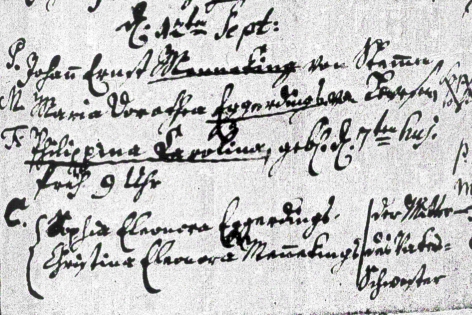 d. 12ten Sept:
P. Johann Ernst Menneking von Stemmen
M. Maria Dorothea Eggerdings von
F. Philippina Carolina, gebh. d. 7ten hus.
früh 9 Uhr
C. Sophia Eleonora Eggerdings, der Mutter
Christina Eleonora Mennekings des Vaters
Schwester